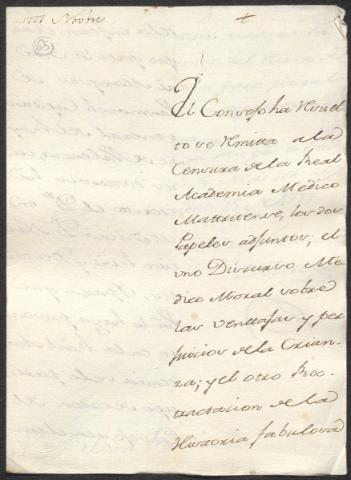 1777 Novbre
63
El Consejo ha resuel
to se remita a la
Censura de la Real
Academia Medico
Matritense, los dos
Papeles adjuntos; el
uno Discurso Me-
dico Moral sobre
las ventajas y per-
juicios de la Crian-
za; y el otro Re-
tractacion de la
Historia fabulosa